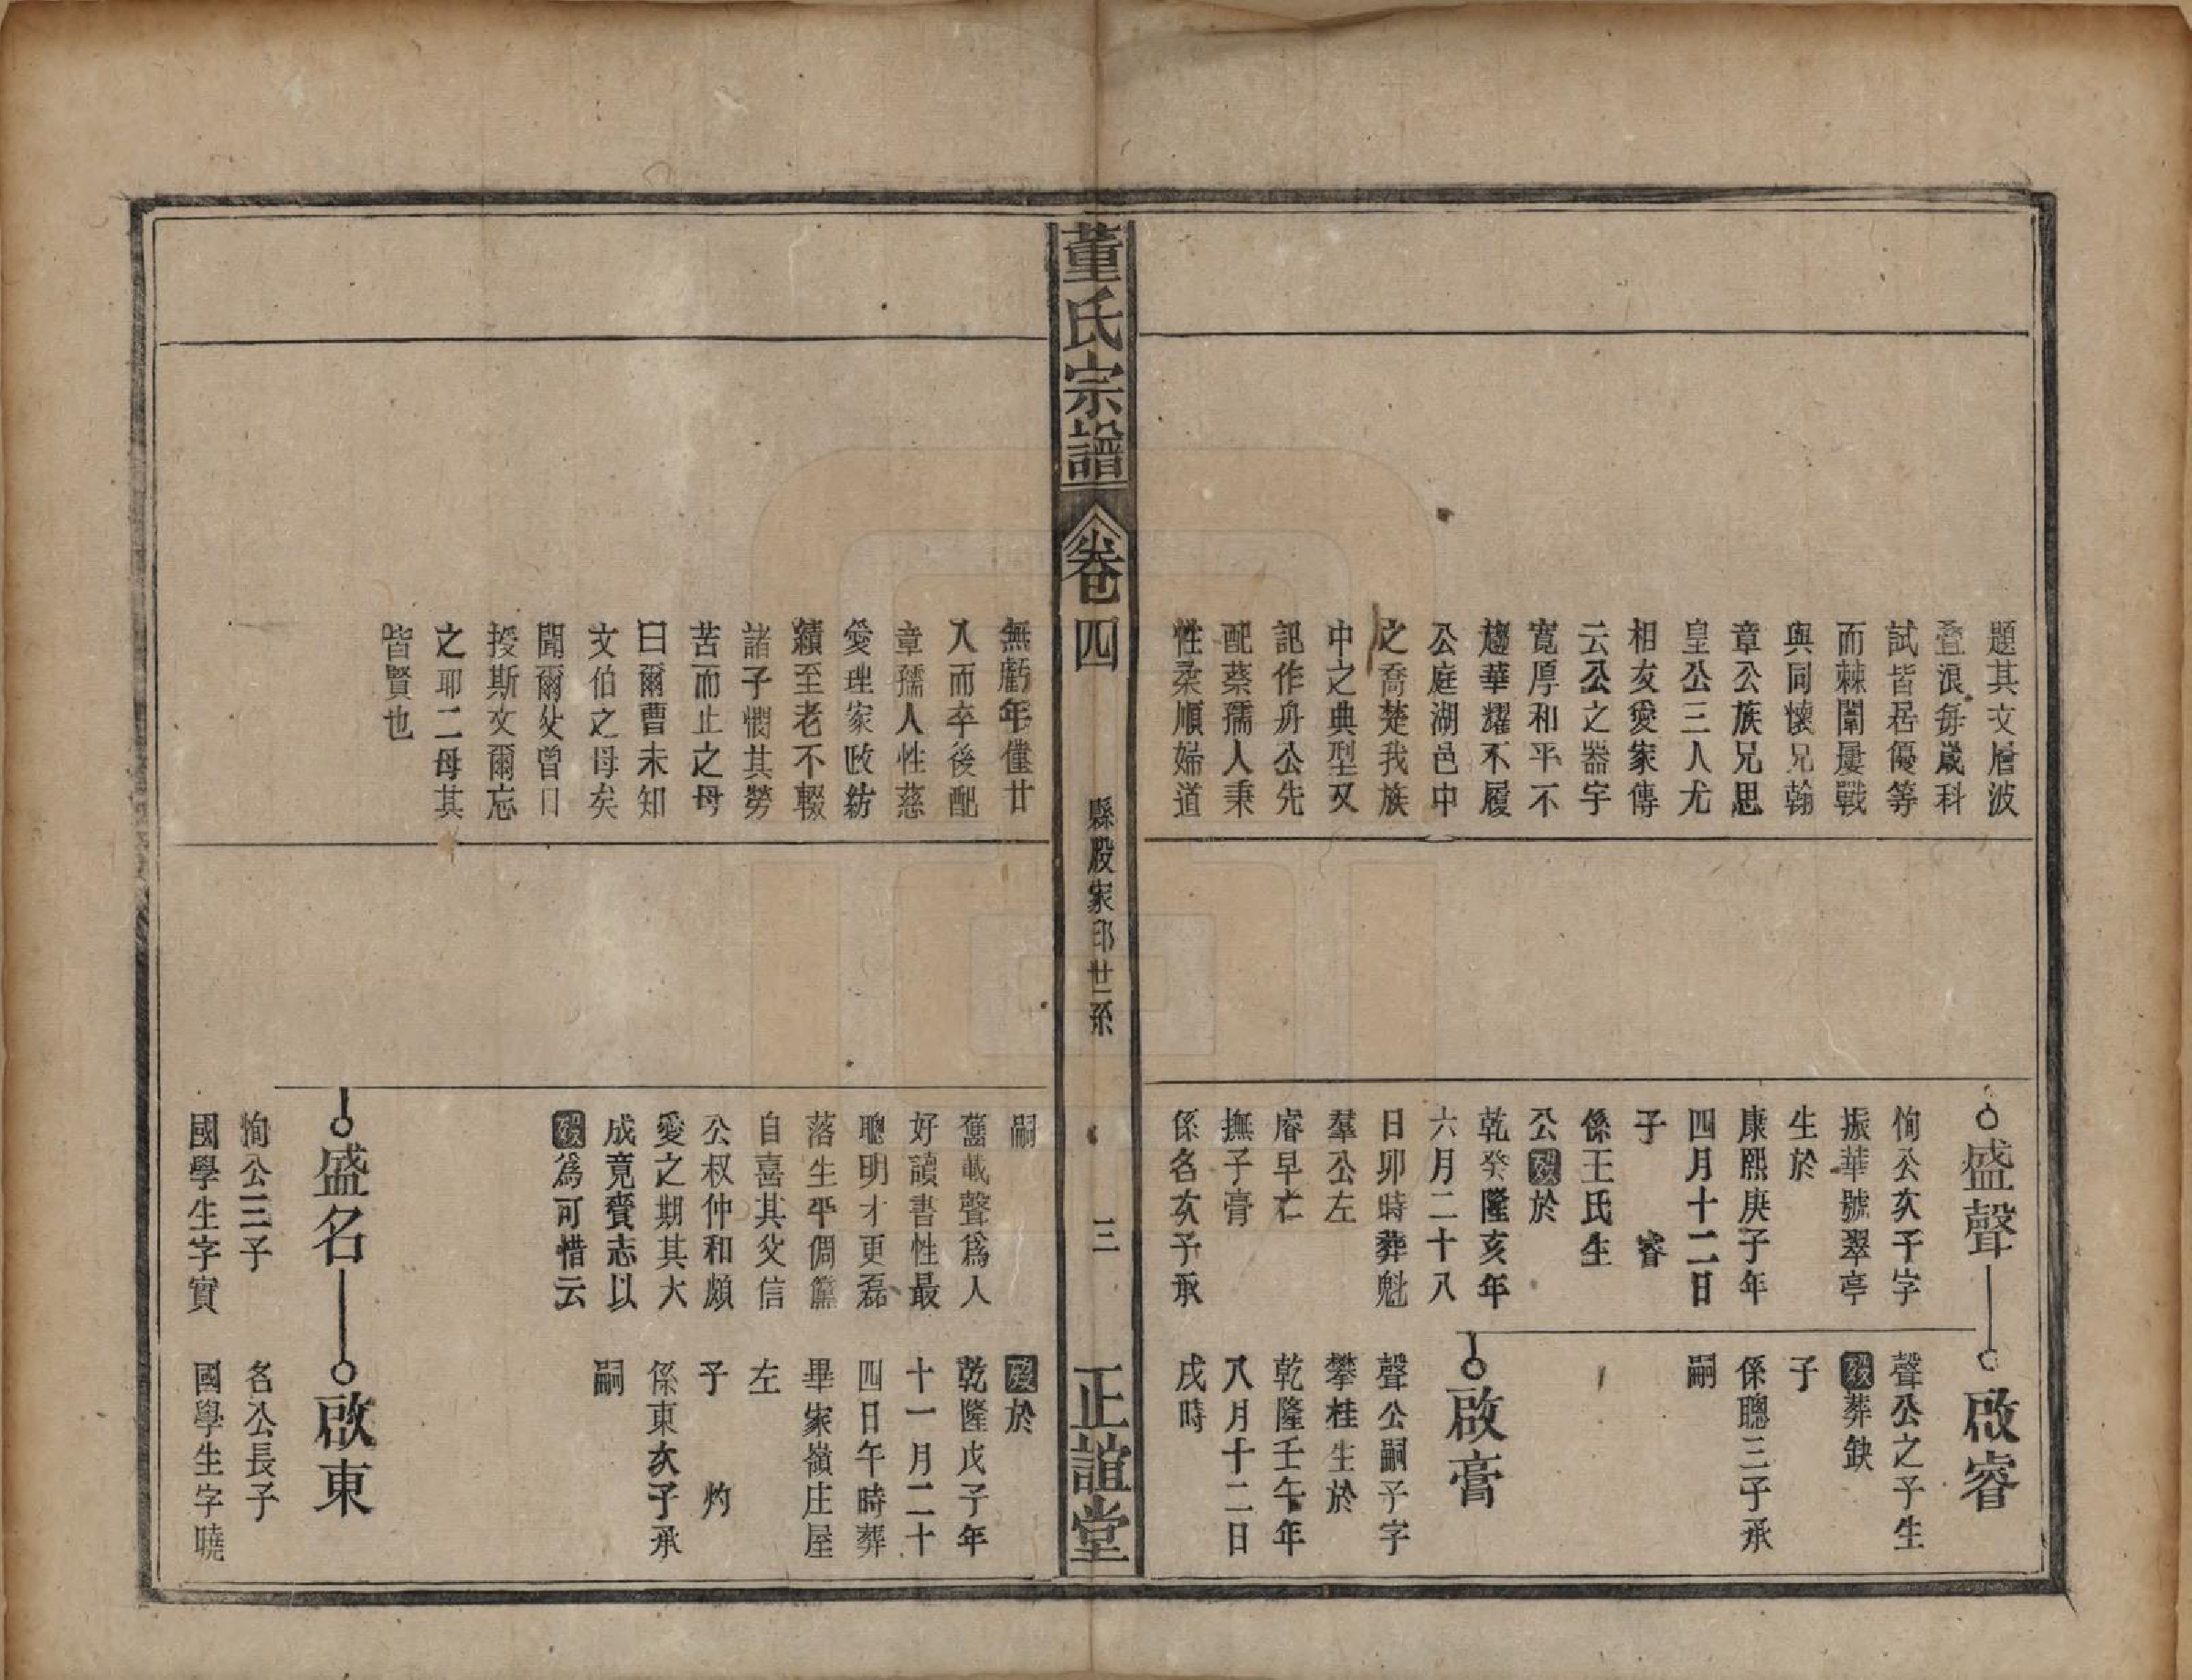 題其文層波
疊浪每歲科
試皆居優等
而棘闈屢戰
與同懷兄翰
章公族兄思
皇公三人尤
相友愛家傳
云公之器宇
寬厚和平不
趨華耀不履
公庭湖邑中
之喬楚我族
中之典型又
記作舟公先
配蔡孺人秉
性柔順婦道
盛聲
恂公次子字
振華號翠亭
生於
康熙庚子年
四月十二日
子 睿
係王氏生
公歿於
乾隆癸亥年
六月二十八
日卯時葬魁
羣公左
睿早亡
撫子膏
係名次子承
啟睿
聲公之子生
歿葬缺
子
係聰三子承
嗣
啟膏
聲公嗣子字
攀桂生於
乾隆壬午年
八月十二日
戌時
董氏宗譜
卷四
縣股家邱世系
三
正誼堂
無虧年僅廿
入而卒後配
章孺人性慈
愛理家政紡
績至老不輟
諸子憫其勞
苦而止之母
曰爾曹未知
文伯之母矣
聞爾父曾日
授斯文爾忘
之耶二母其
皆賢也
嗣
舊載聲為人
好讀書性最
聰明才更磊
落生平倜儻
自喜其父信
公叔仲和頗
愛之期其大
成竟賫志以
歿為可惜云
歿於
乾隆戊子年
十一月二十
四日午時葬
畢家嶺庄屋
左
子 灼
係東次子承
嗣
盛名
恂公三子
國學生字實
啟東
名公長子
國學生字曉